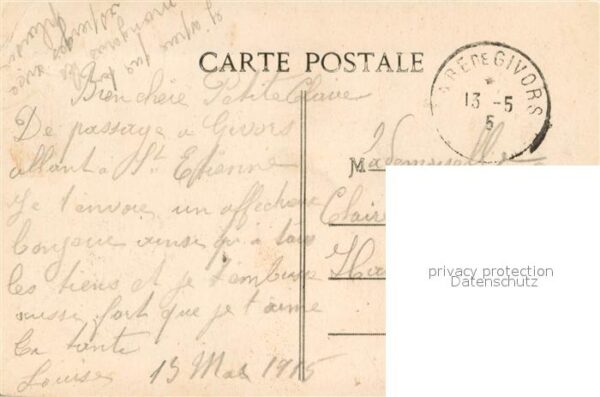 CARTE POSTALE
GARE DE GIVORS
13 -5
5
Bien chère Petite Claire
De passage à Givors
allant à St Etienne
Je t'envoie un affectueux
bonjour ainsi qu'à tous
les tiens et je t'embrasse
aussi fort que je t'aime
Ta tante
Louise 13 Mai 1915
Mademoiselle
Clair
privacy protection
Datenschutz